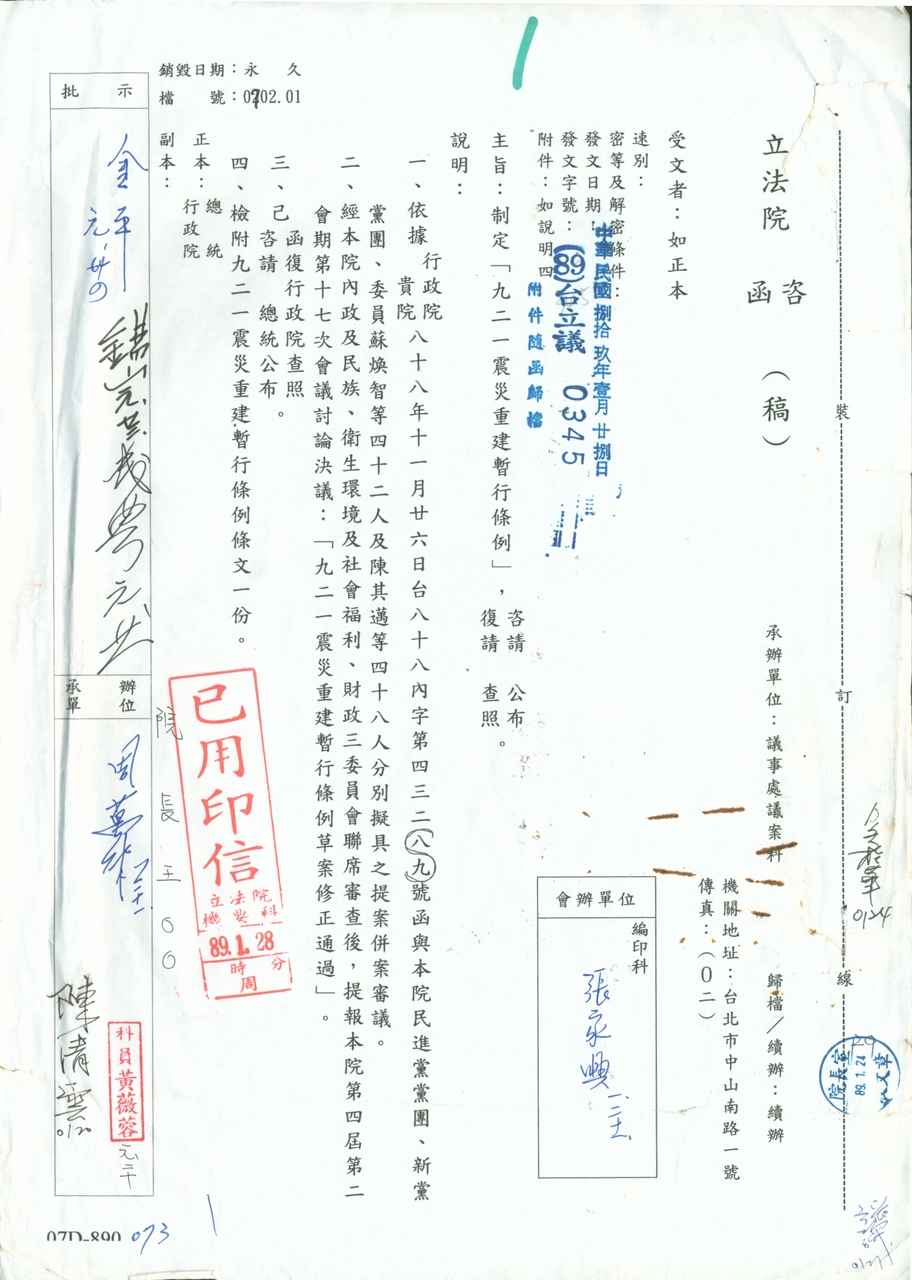 銷毀日期：永久
檔號：0702.01
立法院 咨函 （稿）
承辦單位：議事處議案科
歸檔／續辦：續辦
機關地址：台北市中山南路一號
傳真：（０二）
受文者：如正本
速別：
密等及解密條件：
發文日期：中華民國捌拾玖年壹月廿捌日
發文字號：(89)台立議 0345
附件：如說明四
附件隨函歸檔
會辦單位
編印科
張永興
主旨：制定「九二一震災重建暫行條例」，咨請 公布
復請 查照。
說明：
一、依據行政院
貴院
八十八年十一月廿六日台八十八內字第四三二八九號函與本院民進黨黨團、新黨
黨團、委員蘇煥智等四十二人及陳其邁等四十八人分別擬具之提案併案審議。
二、經本院內政及民族、衛生環境及社會福利、財政三委員會聯席審查後，提報本院第四屆第二
會期第十七次會議討論決議：「九二一震災重建暫行條例草案修正通過」。
三、函復行政院查照
己咨請 總統公布。
四、檢附九二一震災重建暫行條例條文一份。
正本：總統
行政院
副本：
院長王００
已用印信
立法院
機要科
89.1.28
時 分
周
批示
金平
元.廿四
承辦單位
陳清雲
0120
科員黃薇蓉
元.二十
裝
訂
線
0124
院長室
89.1.24
07D-890 073